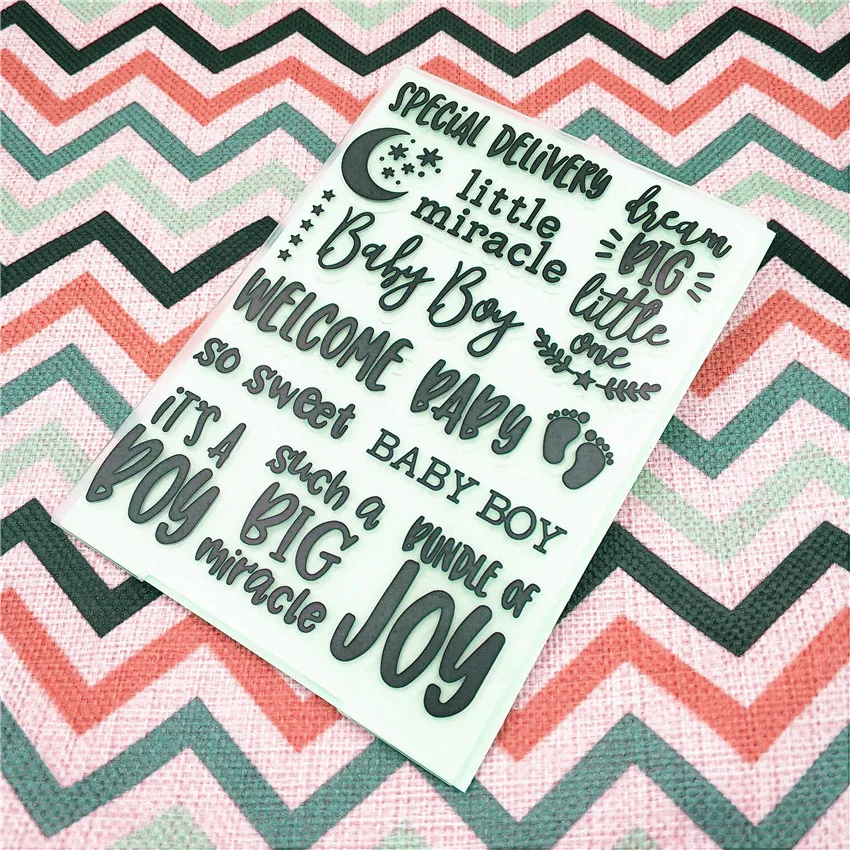 SPECiAL DELiVERY
little
miracle
dream
BIG
little
one
Baby Boy
WELCOME BABY
so sweet
iT'S A
BOY
BABY BOY
such a
BIG
miracle
BUNDLE OF
JOY